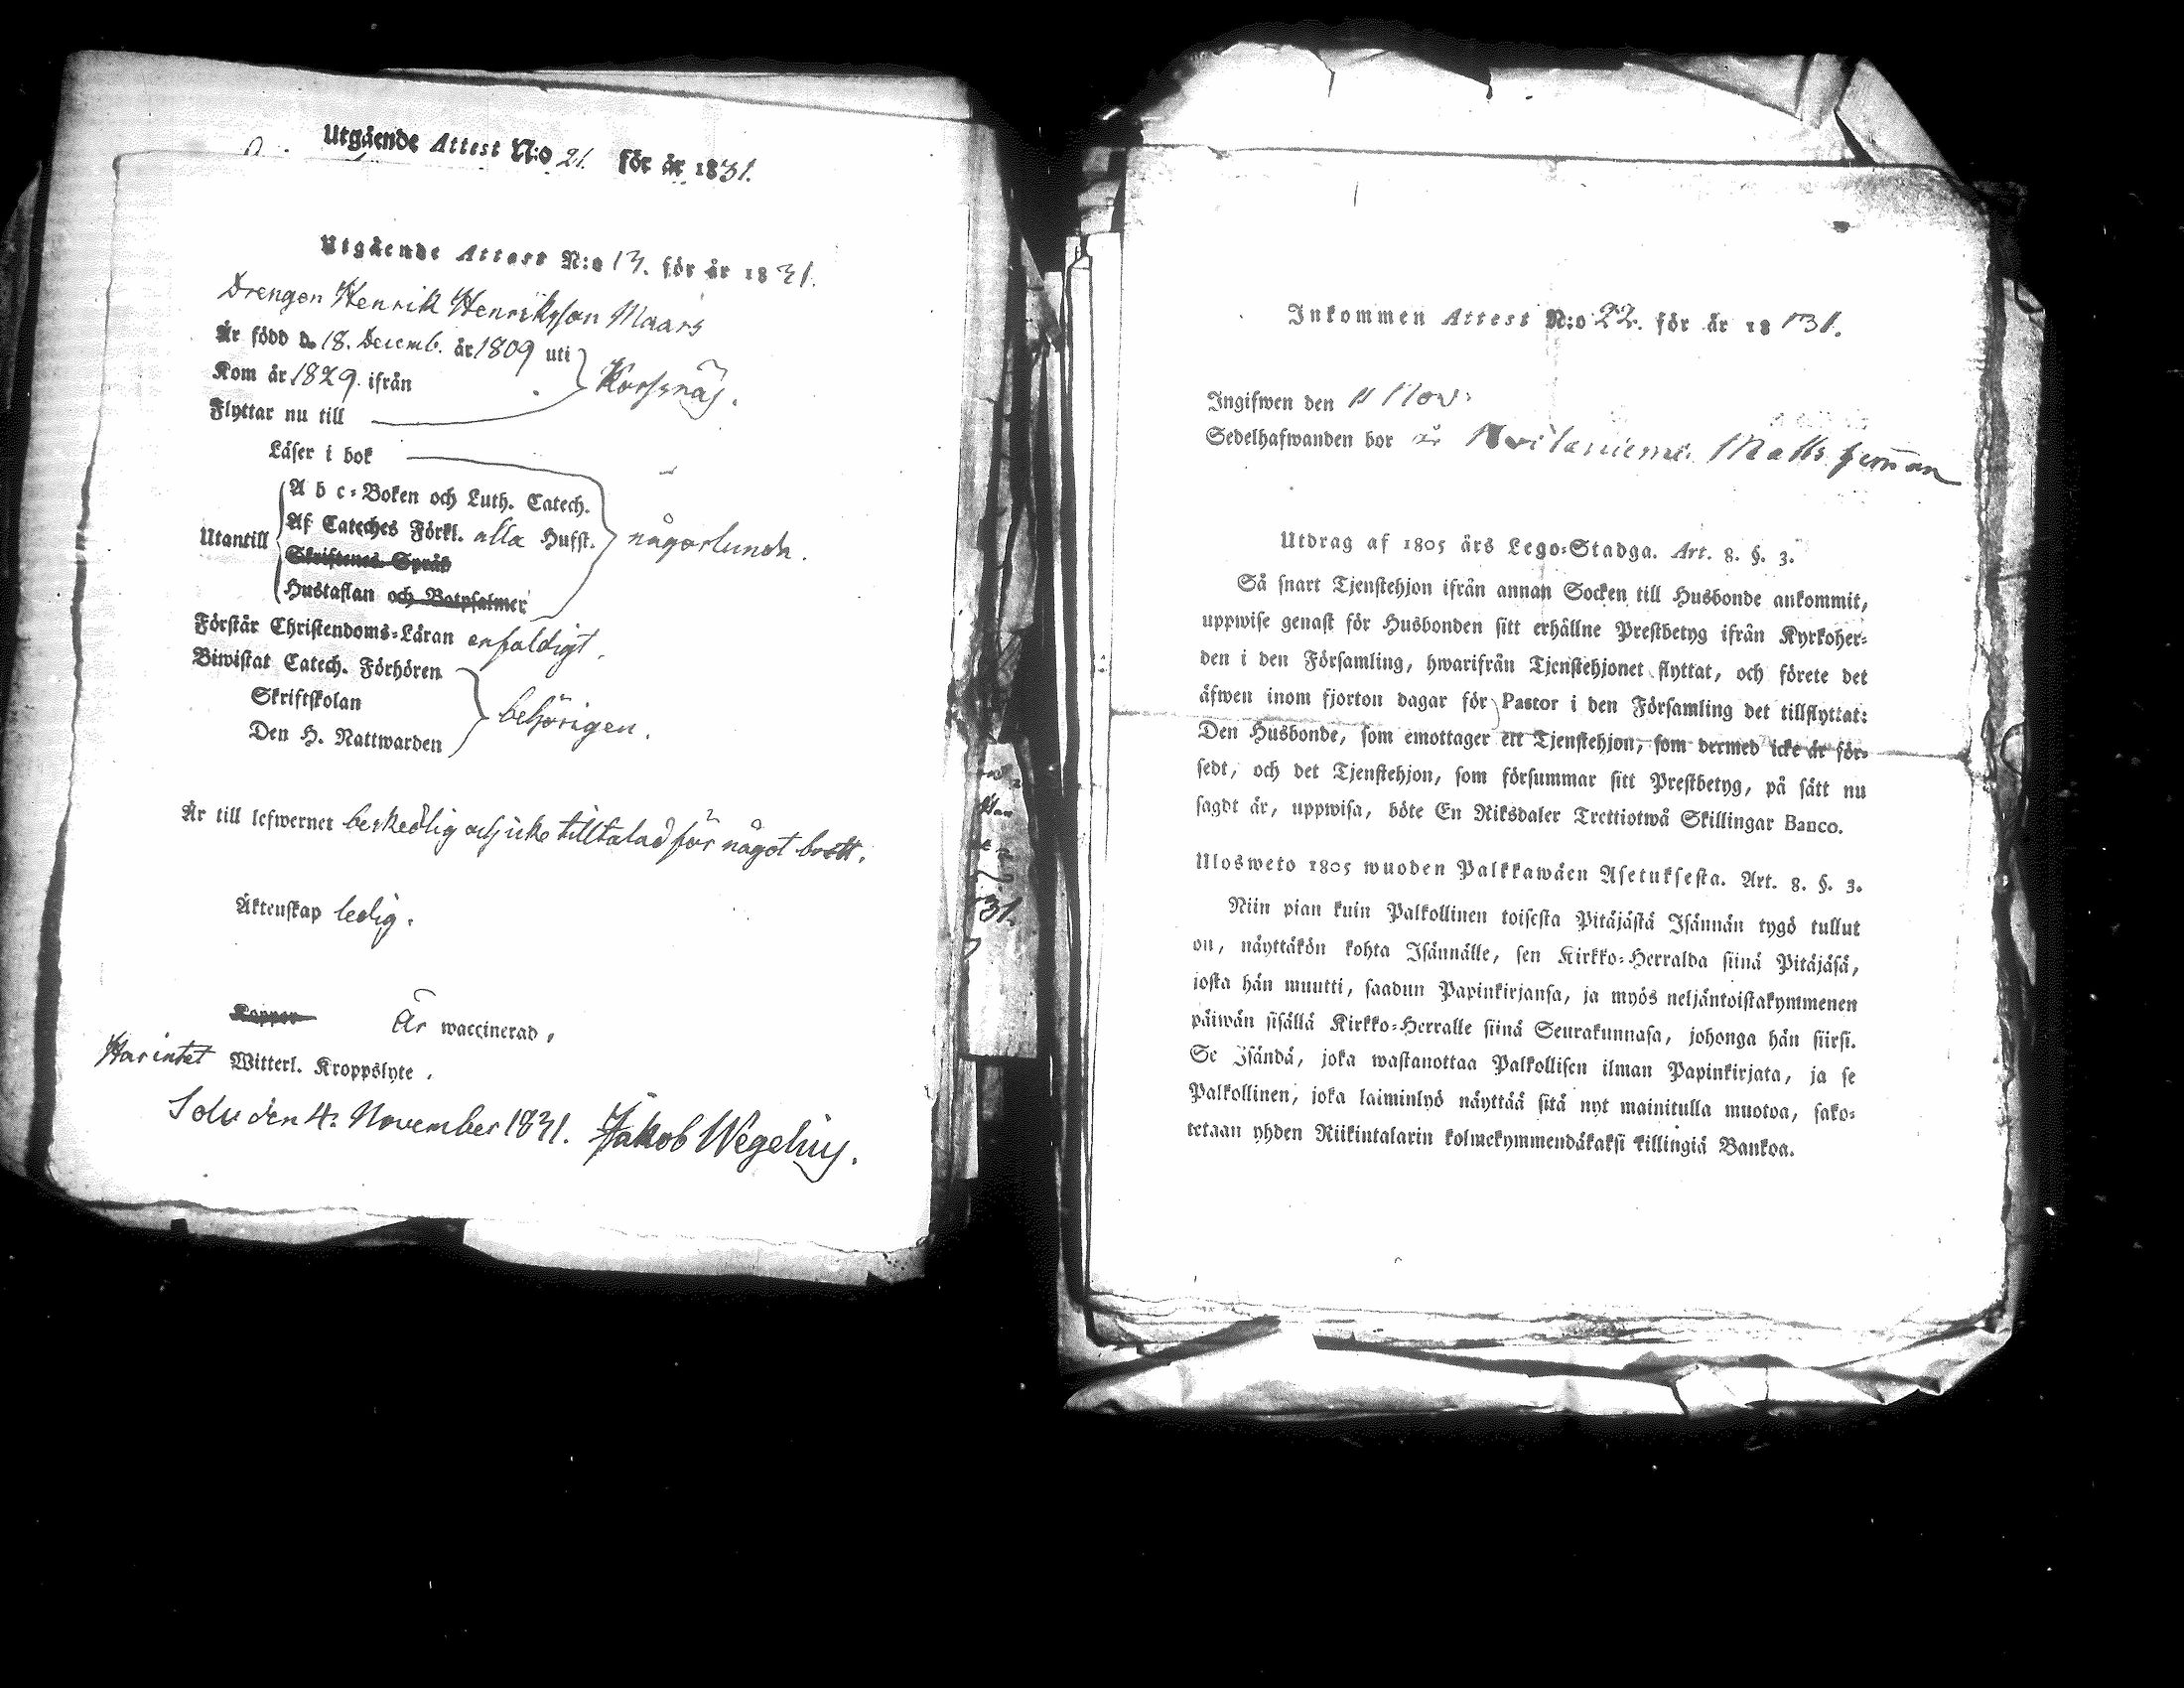 Utgående Attest N:o 21. för år 1831.
Utgående Attest N:o 13. för år 1831.
Drengen Henrik Henriksson Maars
Är född d. 18. Decemb. år 1809 uti
Kom år 1829. ifrån
Korssnäs.
Flyttar nu till
Läser i bok
A b c-Boken och Luth. Catech.
Utantill
Af Cateches Förkl. alla Husst.
någorlunda.
Skriftenes Språk
Hustaflan och Botpsalmer
Förstår Christendoms-Läran enfaldigt.
Biwistat Catech. Förhören
Skriftskolan
behörigen.
Den H. Nattwarden
Är till lefwernet beskedlig och icke tilltalad för något brott.
Äktenskap ledig.
Koppor
Är waccinerad.
Har intet Witterl. Kroppslyte.
Solv den 4. November 1831. Jakob Wegelius.
31.
Inkommen Attest N:o 22. för år 1831.
Ingifwen den 11 Nov:
Sedelhafwanden bor Matts
Utdrag af 1805 års Lego-Stadga. Art. 8. §. 3.
Så snart Tjenstehjon ifrån annan Socken till Husbonde ankommit,
uppwise genast för Husbonden sitt erhållne Prestbetyg ifrån Kyrkoher-
den i den Församling, hwarifrån Tjenstehjonet flyttat, och förete det
äfwen inom fjorton dagar för Pastor i den Församling det tillflyttat:
Den Husbonde, som emottager ett Tjenstehjon, som dermed icke är för-
sedt, och det Tjenstehjon, som försummar sitt Prestbetyg, på sätt nu
sagdt är, uppwisa, böte En Riksdaler Trettiotwå Skillingar Banco.
Ulosweto 1805 wuoden Palkkawäen Asetuksesta. Art. 8. §. 3.
Niin pian kuin Palkollinen toisesta Pitäjästä Isännän tygö tullut
on, näyttäkön kohta Isännälle, sen Kirkko-Herralda siinä Pitäjäsä,
josta hän muutti, saadun Papinkirjansa, ja myös neljäntoistakymmenen
päiwän sisällä Kirkko-Herralle siinä Seurakunnasa, johonga hän siirsi.
Se Isändä, joka wastanottaa Palkollisen ilman Papinkirjata, ja se
Palkollinen, joka laiminlyö näyttää sitä nyt mainitulla muotoa, sako-
tetaan yhden Riikintalarin kolmekymmendäkaksi killingiä Bankoa.